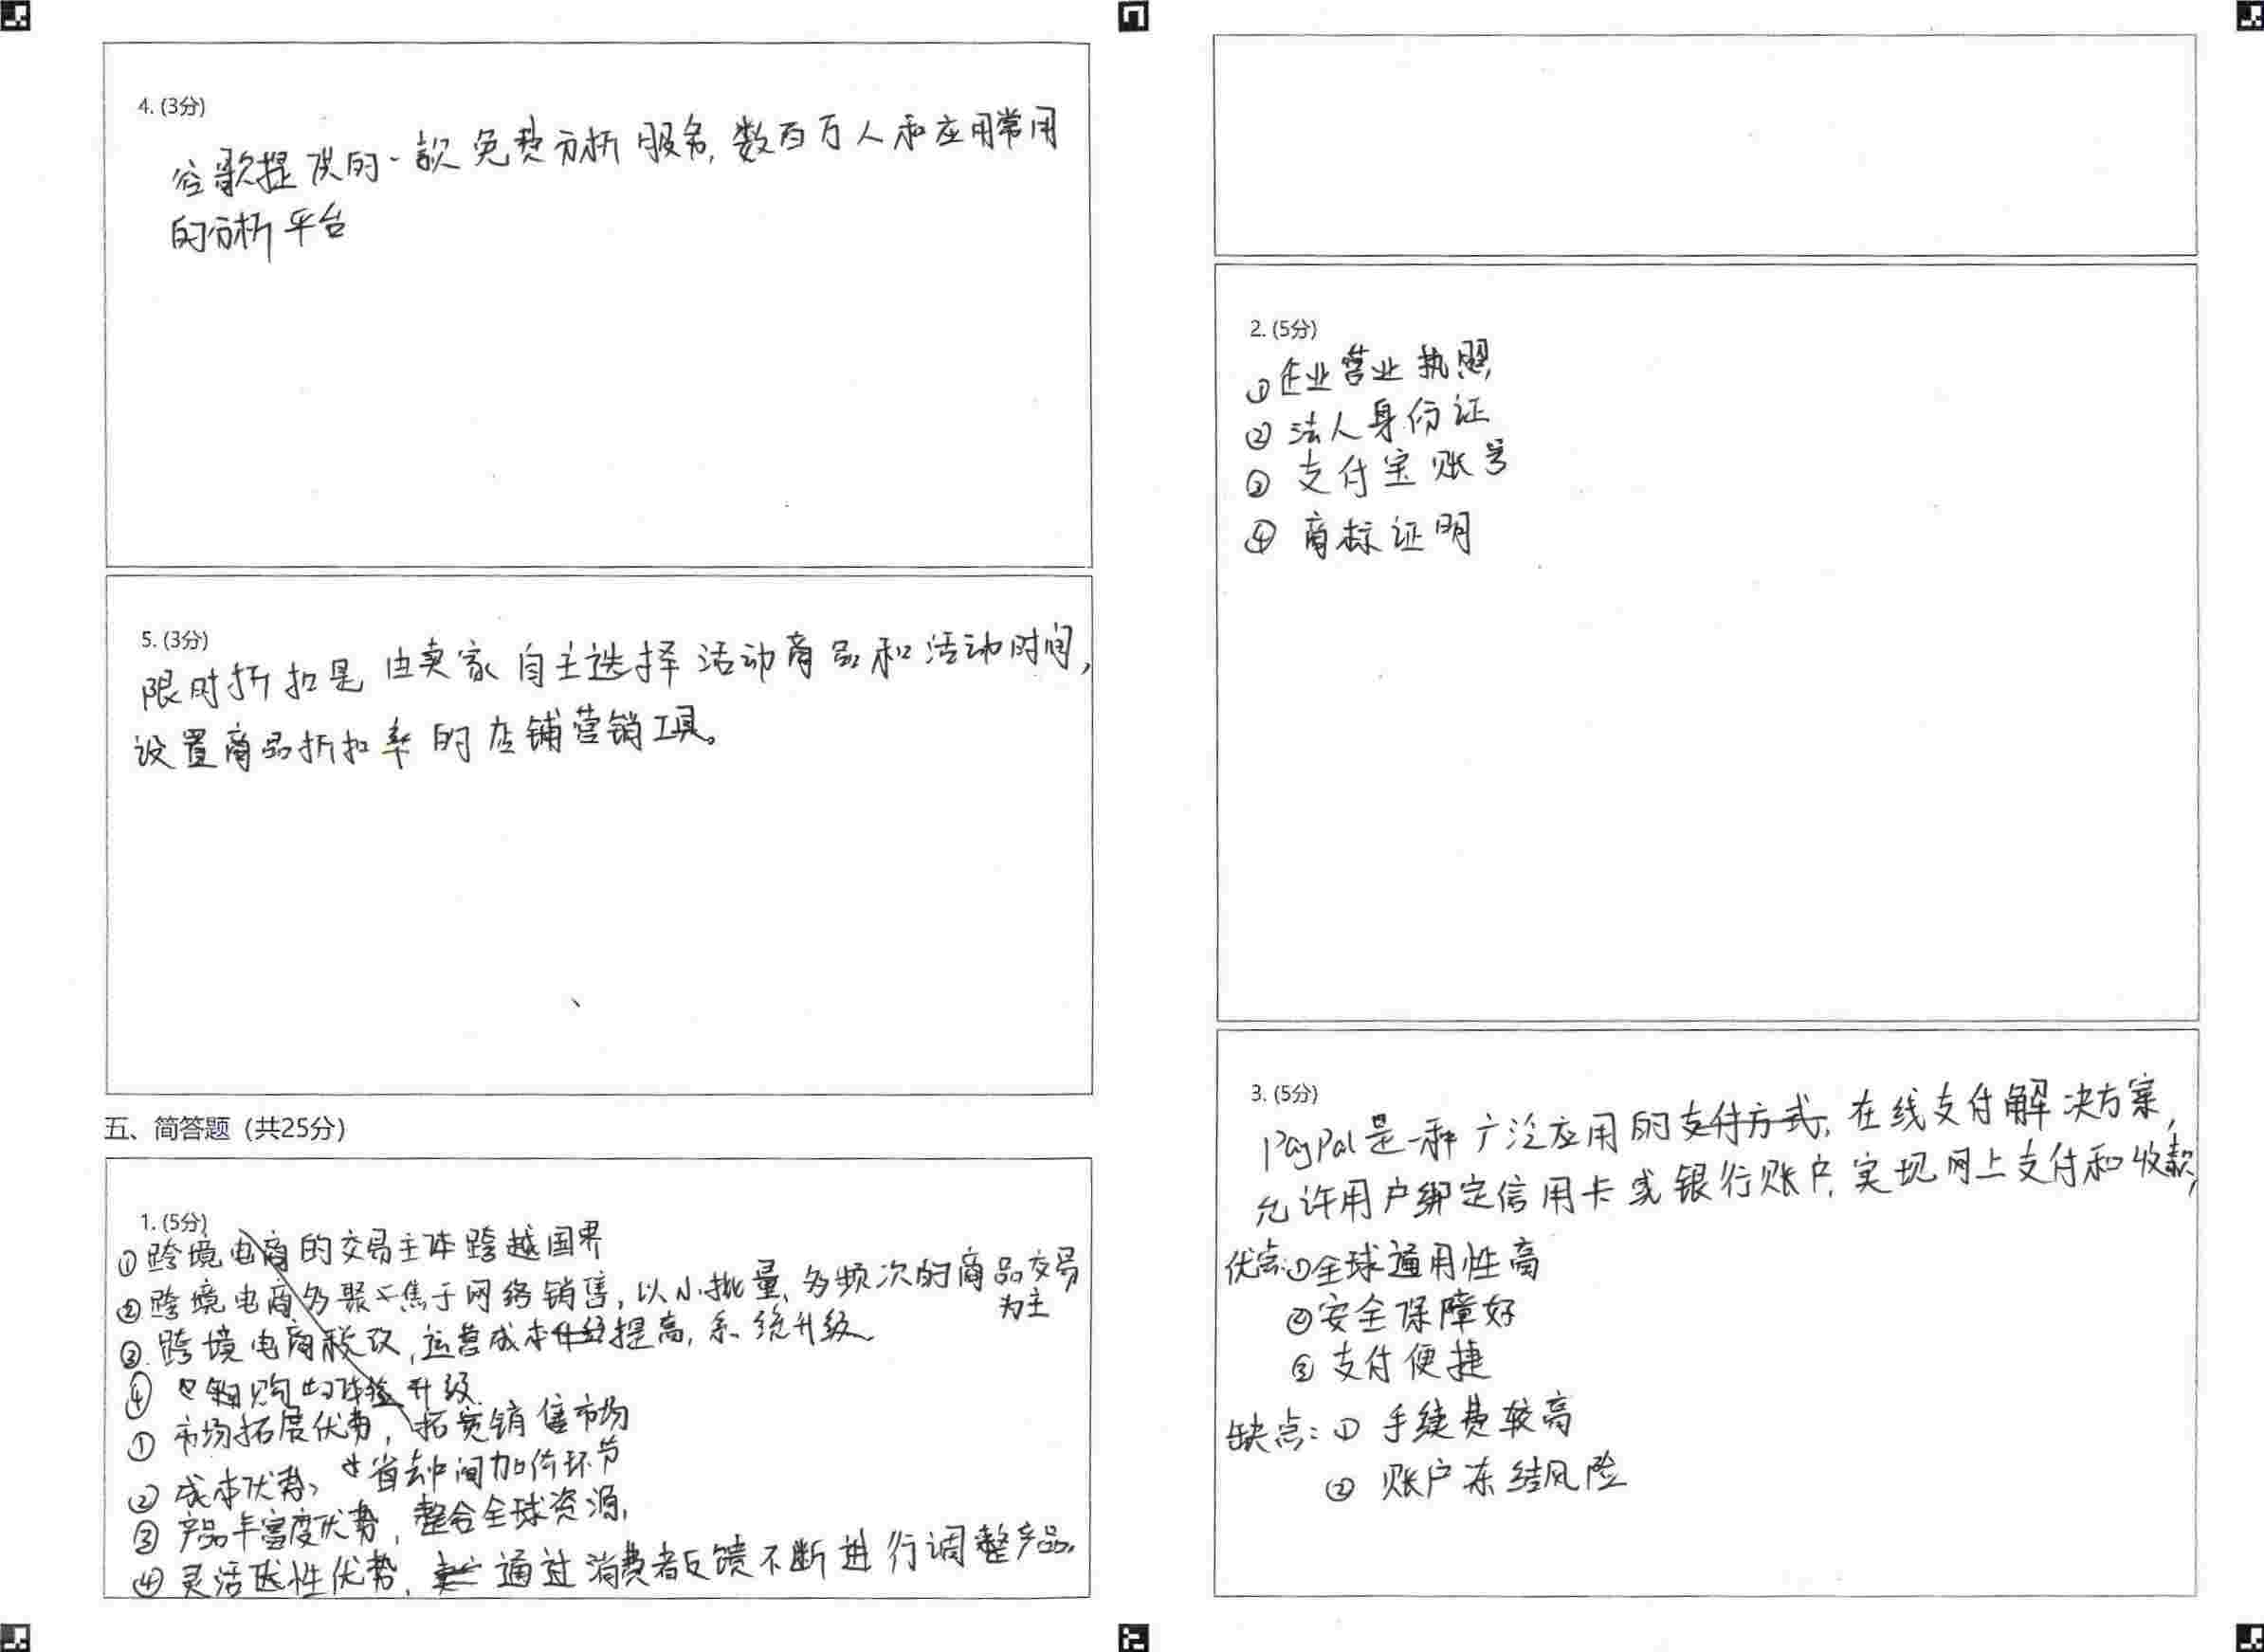 4. (3分)
谷歌提供的一款免费分析服务,数百万人和应用常用
的分析平台
5. (3分)
限时折扣是由卖家自主选择活动商品和活动时间,
设置商品折扣率的店铺营销工具。
五、简答题（共25分）
1. (5分)
①跨境电商的交易主体跨越国界
②跨境电商多聚焦于网络销售,以小批量、多频次的商品交易
为主
③跨境电商税改,运营成本提高,系统升级
④购体验升级
①市场拓展优势,拓宽销售市场
②成本优势、省去中间加价环节
③产品丰富度优势,整合全球资源,
④灵活性优势,通过消费者反馈不断进行调整产品。
2. (5分)
①企业营业执照
②法人身份证
③支付宝账号
④商标证明
3. (5分)
PayPal是一种广泛应用的支付方式,在线支付解决方案,
允许用户绑定信用卡或银行账户,实现网上支付和收款,
优点:①全球通用性高
②安全保障好
③支付便捷
缺点:①手续费较高
②账户冻结风险